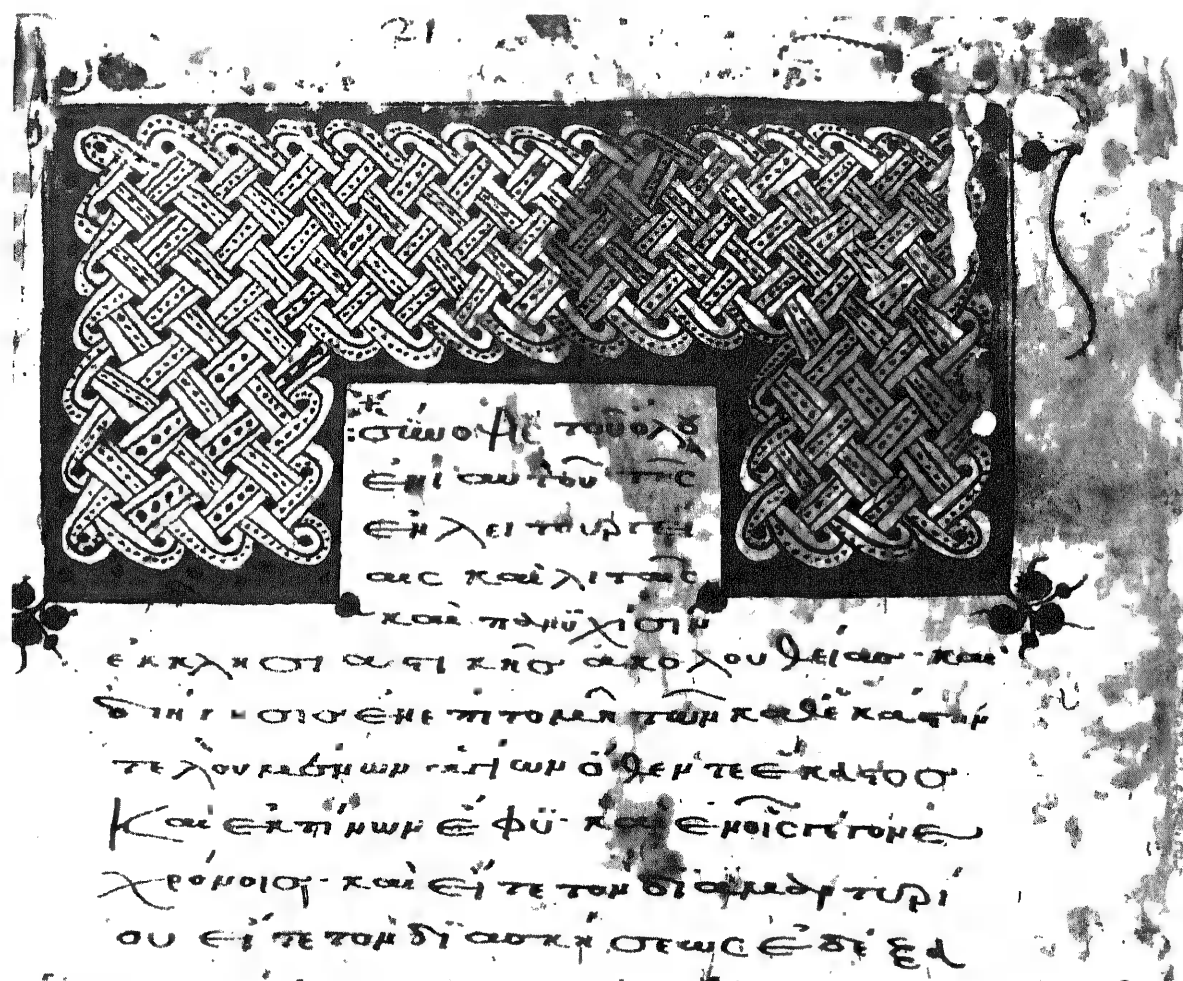 21
σύνοψις τοῦ ὅλου
ἐνιαυτοῦ τῆς
ἐν λειτουργί
αις καὶ λιταῖς
καὶ παννυχίσιν
ἐκκλησιαστικῆς ἀκολουθείας· καὶ
διήγησις ἐν ἐπιτομῇ τῶν καθ ἑκάστην
τελουμένων ἁγίων ὅθεν τε ἕκαστος
καὶ ἐκ τίνων ἔφυ· καὶ ἐν οἷς γέγονε
χρόνοις· καὶ εἴτε τὸν διὰ μαρτυρί
ου εἴτε τὸν δι ἀσκήσεως ἐδέξα